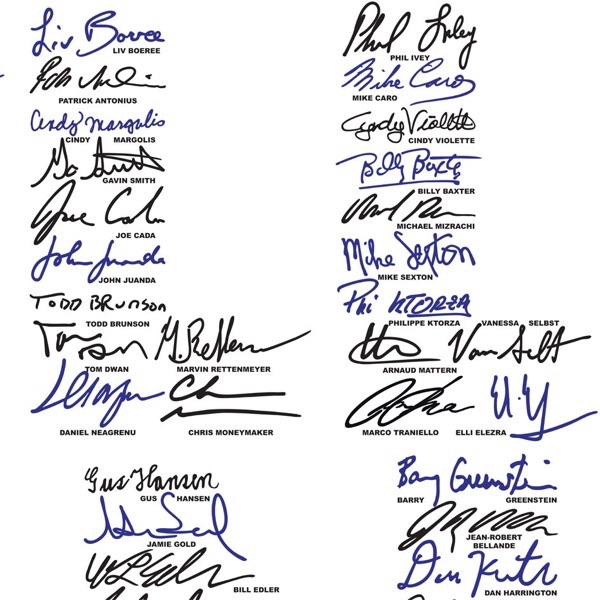 Liv Boeree
LIV BOEREE
PATRICK ANTONIUS
Cindy Margolis
CINDY MARGOLIS
GAVIN SMITH
Joe Cada
JOE CADA
John Juanda
JOHN JUANDA
TODD BRUNSON
TODD BRUNSON
TOM DWAN
MARVIN RETTENMEYER
DANIEL NEAGRENU
CHRIS MONEYMAKER
Gus Hansen
GUS HANSEN
JAMIE GOLD
BILL EDLER
Phil Ivey
PHIL IVEY
Mike Caro
MIKE CARO
Cyndy Violette
CINDY VIOLETTE
Billy Baxter
BILLY BAXTER
MICHAEL MIZRACHI
Mike Sexton
MIKE SEXTON
Phi KTORZA
PHILIPPE KTORZA VANESSA SELBST
ARNAUD MATTERN
MARCO TRANIELLO
ELLI ELEZRA
Barry Greenstein
BARRY GREENSTEIN
JEAN-ROBERT
BELLANDE
DAN HARRINGTON